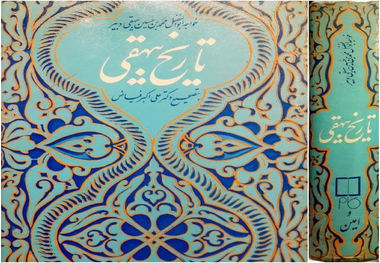 خواجه ابوالفضل محمد بن حسین بیهقی دبیر
تاریخ بیهقی
تصحیح دکتر علی اکبر فیاض
خواجه ابوالفضل محمد بن حسین بیهقی دبیر
تاریخ بیهقی
و
امین